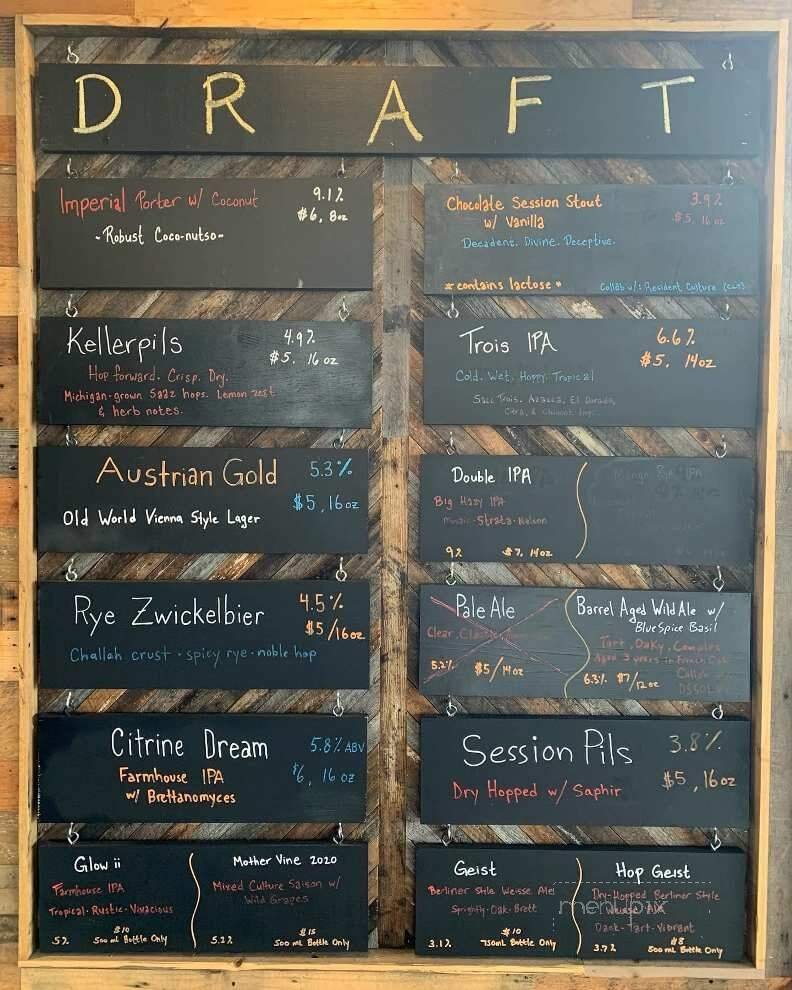 DRAFT
Imperial Porter w/ Coconut 9.1%
$6, 8oz
-Robust Coco-nutso-
Kellerpils 4.9%
$5. 16 oz
Hop forward. Crisp. Dry.
Michigan-grown Saaz hops. Lemon zest
& herb notes.
Austrian Gold 5.3%
$5, 16oz
Old World Vienna Style Lager
Rye Zwickelbier 4.5%
$5/16oz
Challah crust · spicy rye · noble hop
Citrine Dream 5.8% ABV
Farmhouse IPA $6, 16 oz
w/ Brettanomyces
Glow ii
Farmhouse IPA
Tropical · Rustic · Vivacious
$10
5% 500 mL Bottle Only
Mother Vine 2020
Mixed Culture Saison w/
Wild Grapes
$15
5.2% 500 mL Bottle Only
Chocolate Session Stout 3.9%
w/ Vanilla $5. 16 oz
Decadent. Divine. Deceptive.
* contains lactose * Collab w/: Resident Culture
Trois IPA 6.6%
$5. 14oz
Cold. Wet. Hoppy. Tropical
Trois, Azacca, El Dorado,
Citra, &
Double IPA
Big Hazy IPA
Mosaic · Strata · Nelson
9% $7, 14oz
IPA
Pale Ale
Clear. Classic.
5.2% $5/14oz
Barrel Aged Wild Ale w/
Blue Spice Basil
Tart, Oaky, Complex
Aged 3 years in French Oak
6.3% $7/12oz
Session Pils 3.8%
$5, 16oz
Dry Hopped w/ Saphir
Geist
Berliner Style Weisse Ale
Sprightly · Oak · Brett
$10
3.1% 750ml Bottle Only
Hop Geist
Dry-Hopped Berliner Style
Weisse Ale
Dank · Tart · Vibrant
$8
3.7% 500 mL Bottle Only
menupix